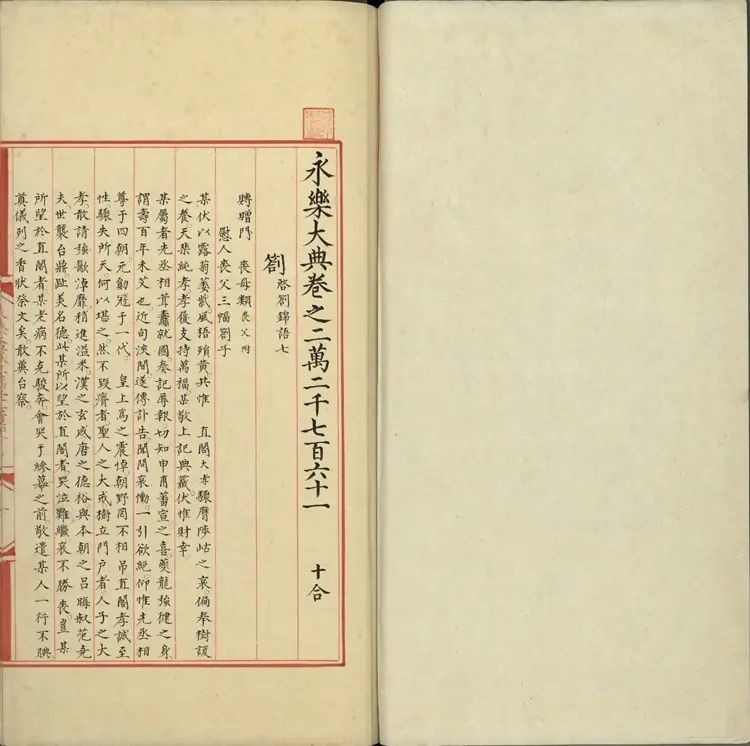 永樂大典卷之二萬二千七百六十一 十合
劄 啓劄錦語七
賻贈門 喪母類喪父附
慰人喪父三幅劄子
某伏以露菊萎䕻風梧殞黄共惟 直閣大孝驟膺陟岵之哀偏奉樹諼
之養天棐純孝孝履支持萬福某敬上記典籖伏惟財幸
某屬者先丞相茸纛就國奏記辱報切知申甫蕃宣之喜夔龍強健之身
謂壽百年未艾也近旬浹間遂傳訃告聞問哀慟一引欲絶仰惟先丞相
尊于四朝元勳冠于一代 皇上爲之震悼朝野罔不相吊直閣孝誠至
性驟失所天何以堪之然不毀瘠者聖人之大戒樹立門户者人子之大
孝敢請強歠淖靡稍進溢米漢之玄成唐之德裕與本朝之吕晦叔范堯
夫世襲台鼎趾美名德此某所以望於直閣者哭泣難繼哀不勝喪豈某
所望於直閣者某老病不克駿奔會哭于縿幕之前敬遣某人一行不腆
奠儀列之香狀祭文矣敢奠台察